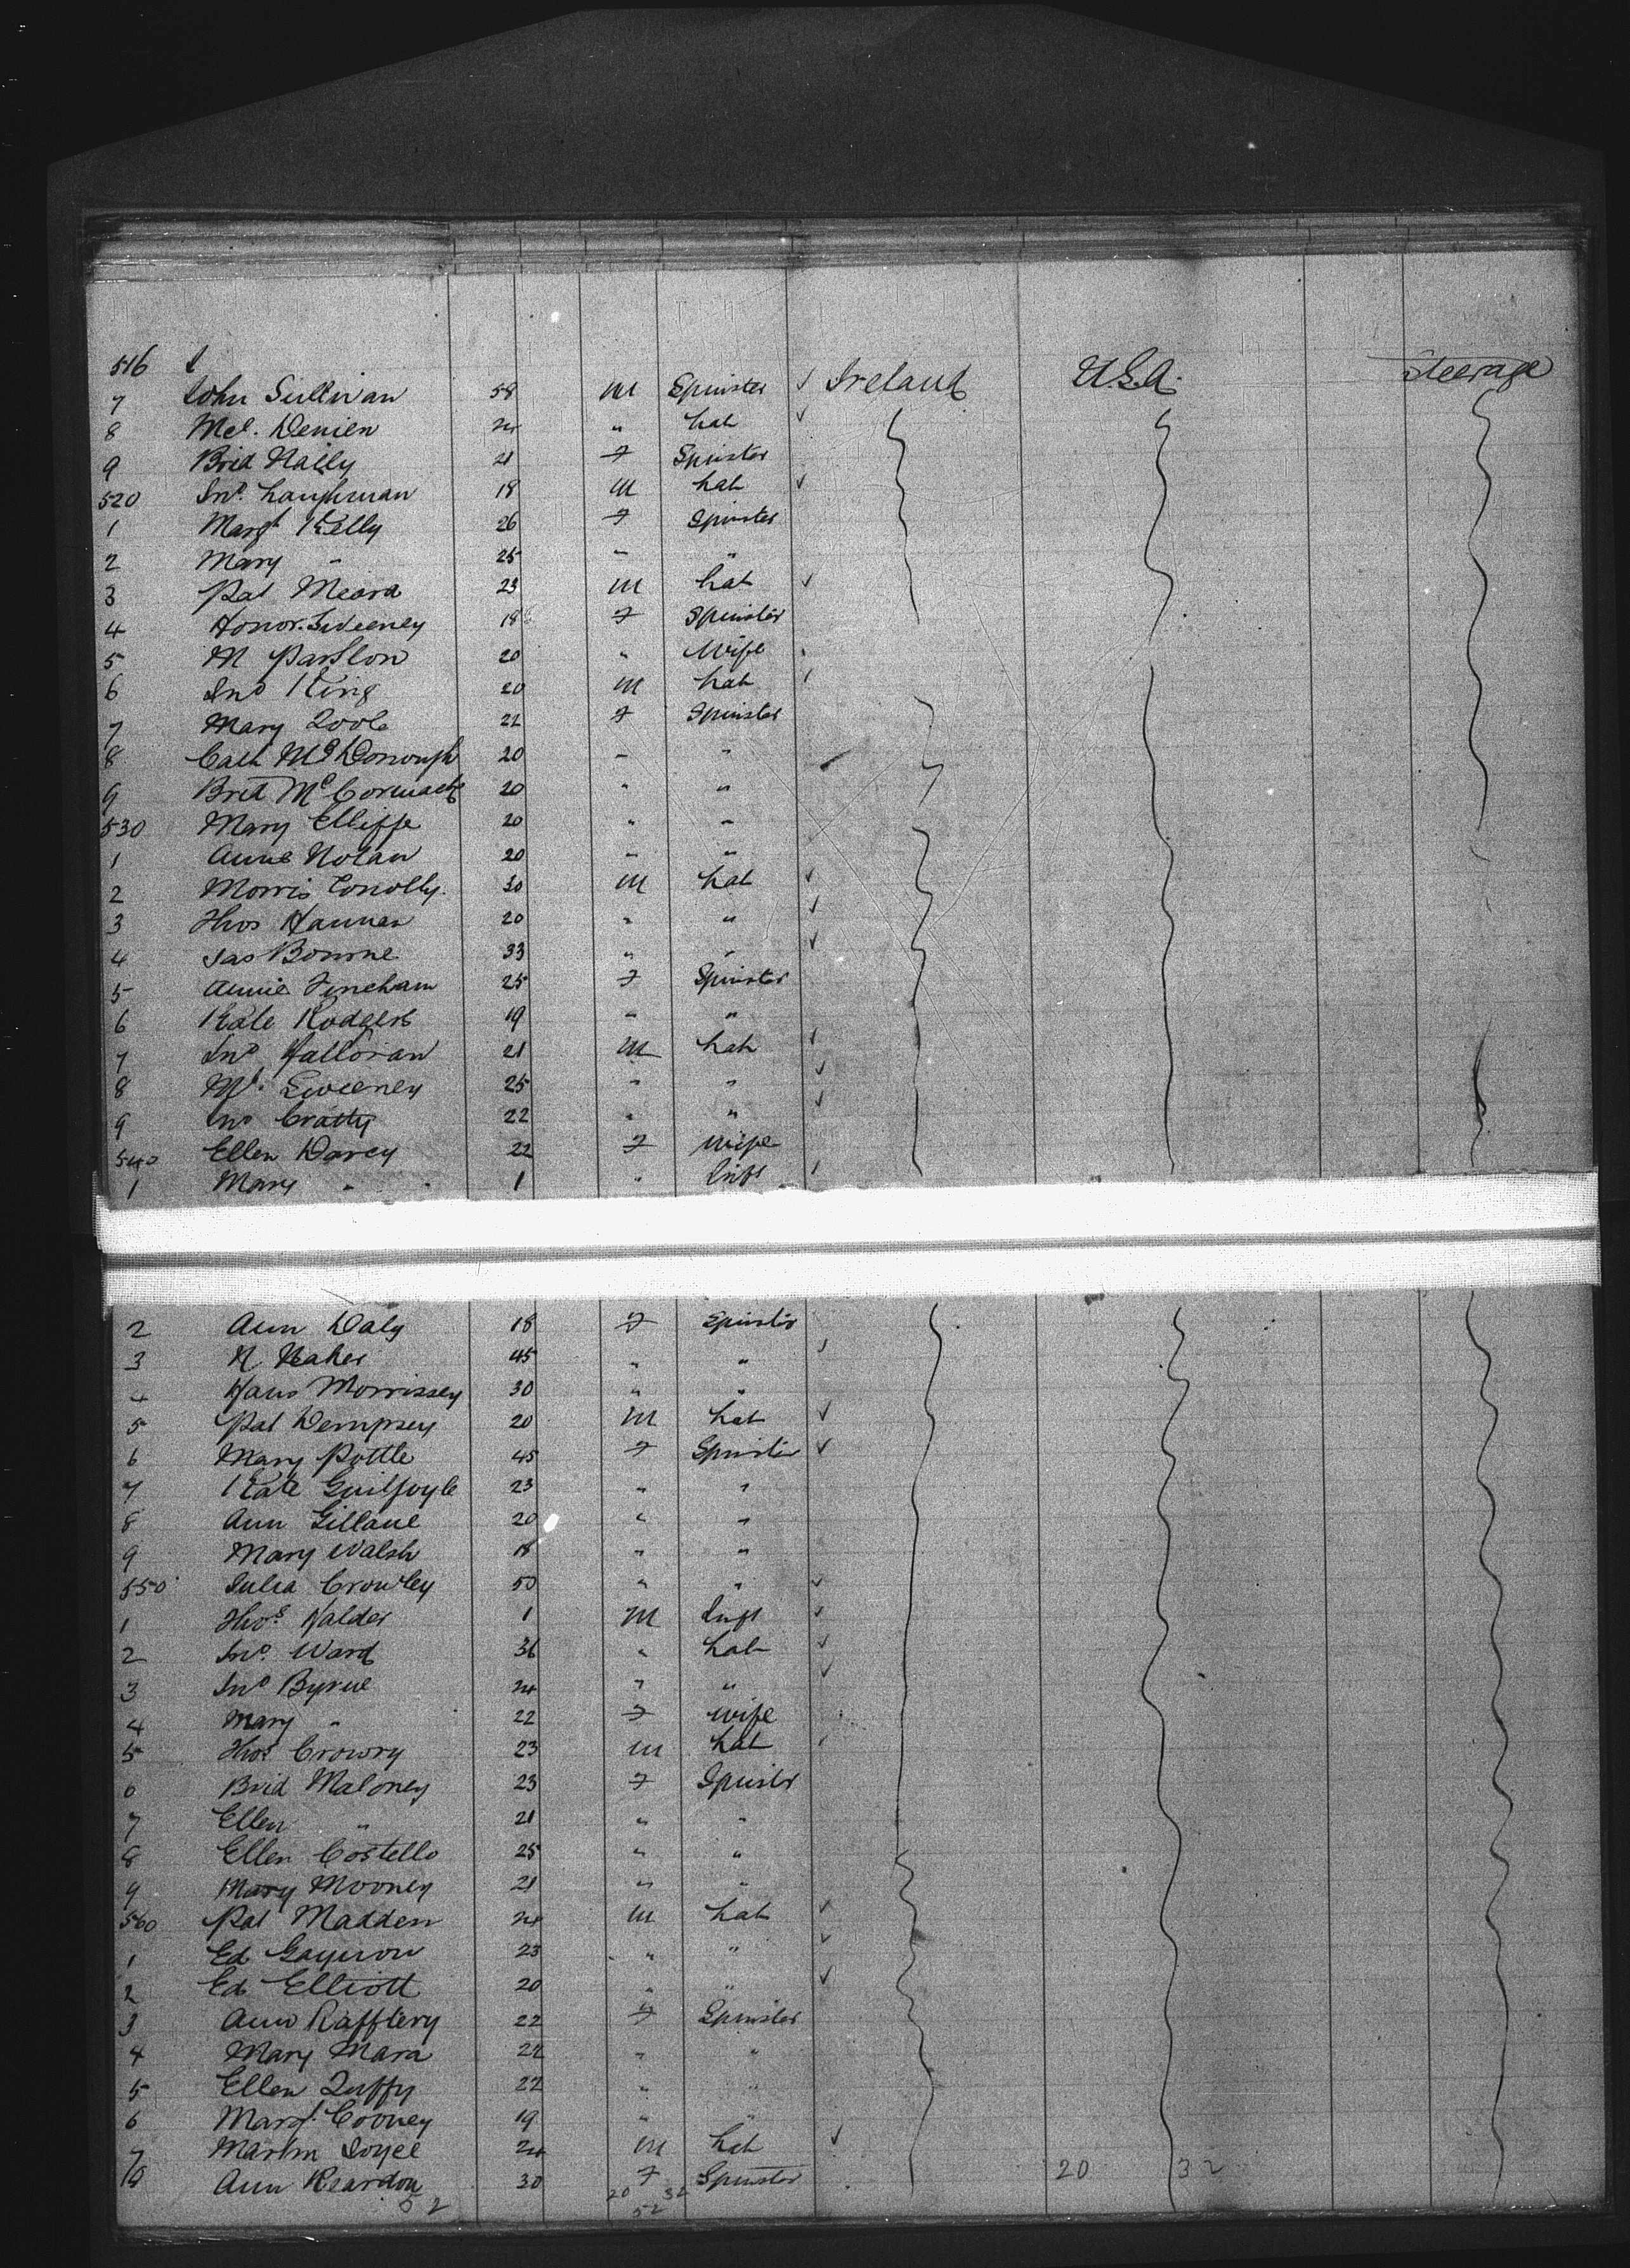 516
7 John Sullivan 58 m Spinster ✓ Ireland U.S.A. Steerage
8 Mcl. 24 " Lab ✓
9 Brid Nally 21 F Spinster
520 Jno. Laughnan 18 m Lab ✓
1 Margt Kelly 26 F Spinster
2 Mary " 25 " "
3 Pat Meara 23 m Lab ✓
4 Honor. Sweeney 18 F Spinster
5 M Parslon 20 " Wife
6 Jno King 20 m Lab
7 Mary Toole 22 F Spinster
8 Cath McDonough 20 " "
9 Brid McCormack 20 " "
530 Mary Elliffe 20 " "
1 Anne Nolan 20 " "
2 Morris Conolly. 30 m Lab ✓
3 Thos Hannan 20 " " ✓
4 Jas Bourne 33 " " ✓
5 Annie Fincham 25 F Spinster
6 Kate Rodgers 19 " "
7 Jno Halloran 21 m Lab ✓
8 Ml. Sweeney 25 " " ✓
9 Jno Cratty 22 " " ✓
540 Ellen Darcy 22 F Wife
1 Mary " 1 " Inft
2 Ann Daly 18 F Spinster
3 N Maher 45 " " ✓
4 Hano Morrissey 30 " "
5 Pat Dempsey 20 m Lab ✓
6 Mary Pottle 45 F Spinster ✓
7 Kate Guilfoyle 23 " "
8 Ann Gillane 20 " "
9 Mary Walsh 18 " "
550 Julia Crowley 50 " " ✓
1 Thos. Halder 1 m Inft ✓
2 Jno. Ward 36 " Lab ✓
3 Jno Byrne 24 " " ✓
4 Mary " 22 F Wife
5 Thos Crowry 23 m Lab
6 Brid Maloney 23 F Spinster
7 Ellen " 21 " "
8 Ellen Costello 25 " "
9 Mary Mooney 21 " "
560 Pat Madden 24 m Lab ✓
1 Ed Gaynon 23 " " ✓
2 Ed Elliott 20 " " ✓
3 Ann Rafftery 22 F Spinster
4 Mary Mara 22 " "
5 Ellen Duffy 22 " "
6 Margt. Cooney 19 " "
7 Martin Joyce 24 m Lab ✓
8 Ann Reardon 30 F Spinster 20 32
52 20 32
52